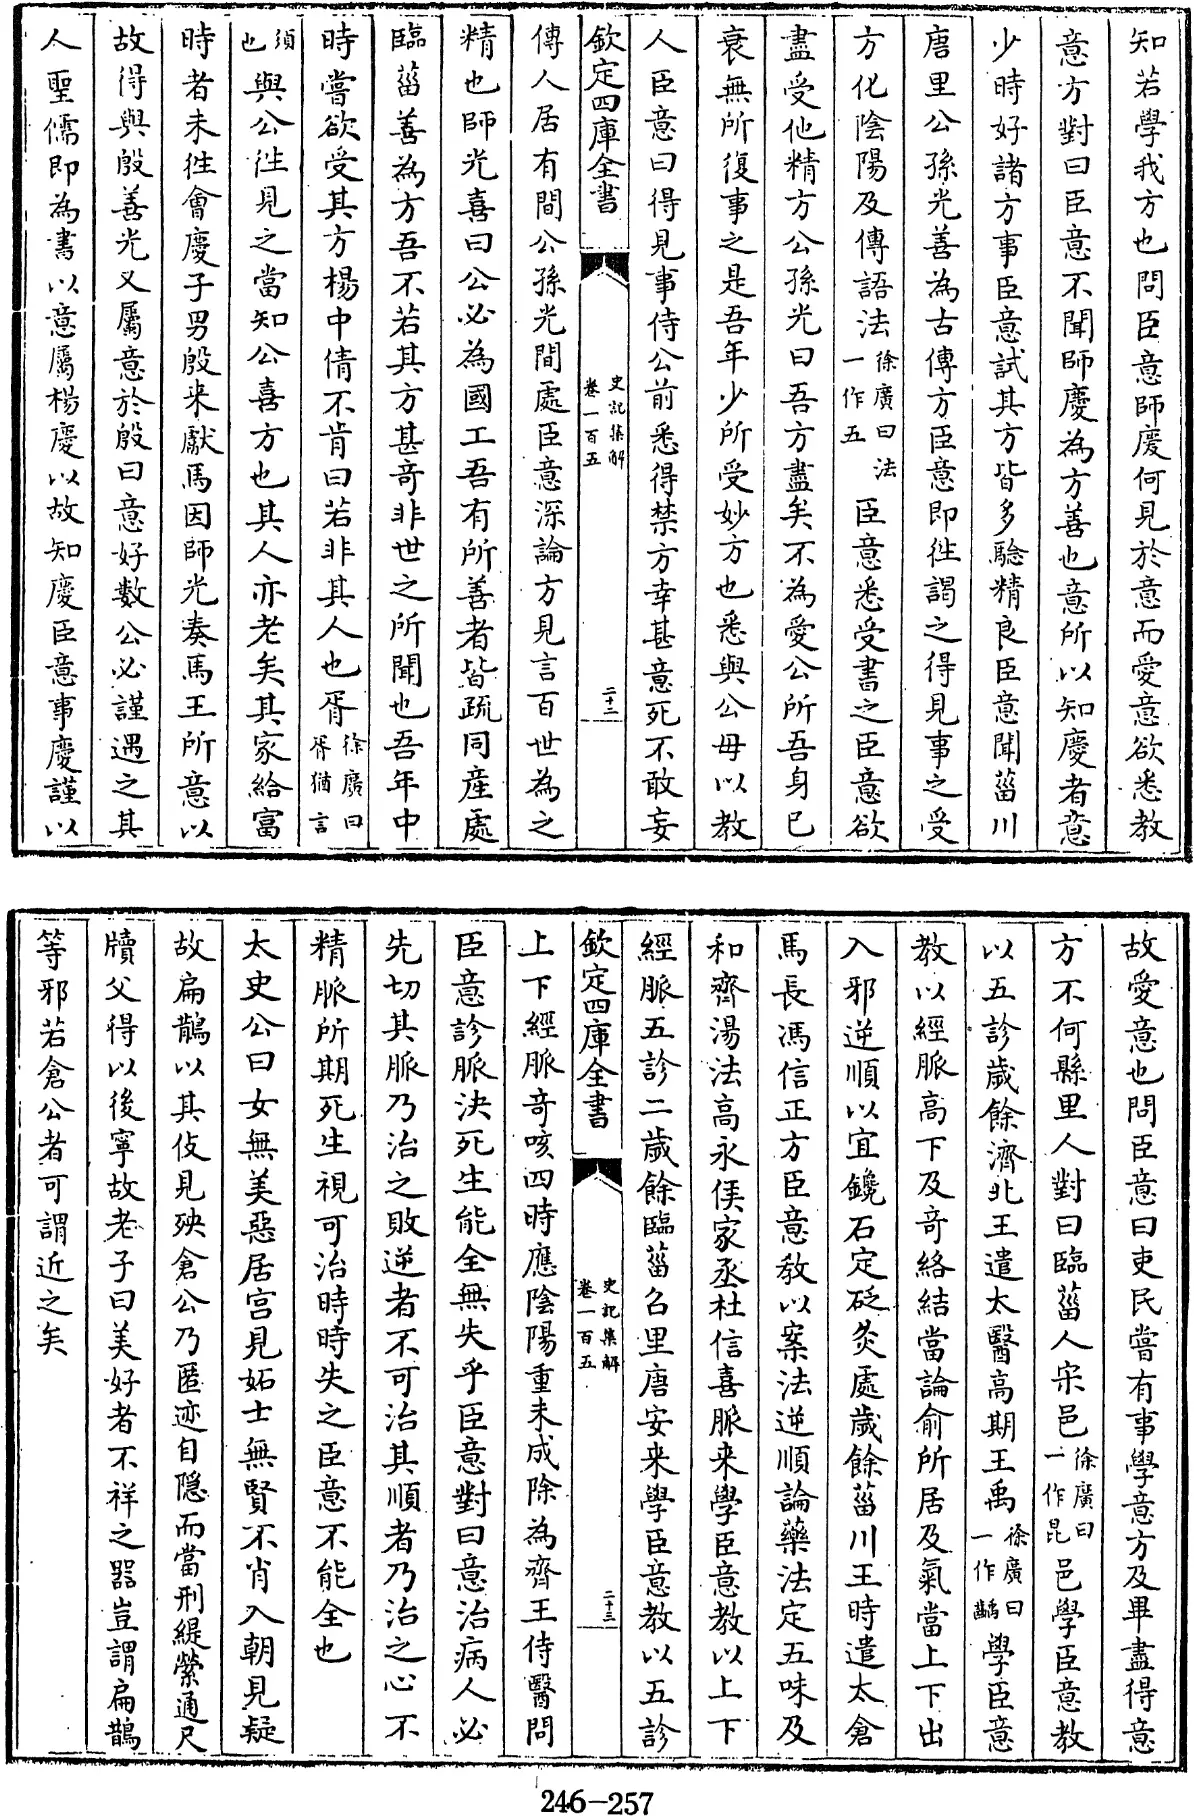 知若學我方也問臣意師慶何見於意而愛意欲悉教
意方對曰臣意不聞師慶為方善也意所以知慶者意
少時好諸方事臣意試其方皆多驗精良臣意聞菑川
唐里公孫光善為古傳方臣意即徃謁之得見事之受
方化陰陽及傳語法徐廣曰法一作五臣意悉受書之臣意欲
盡受他精方公孫光曰吾方盡矣不為愛公所吾身已
衰無所復事之是吾年少所受妙方也悉與公毋以教
人臣意曰得見事侍公前悉得禁方幸甚意死不敢妄
欽定四庫全書
史記集解
卷一百五
二十三
傳人居有間公孫光閒處臣意深論方見言百世為之
精也師光喜曰公必為國工吾有所善者皆疏同産處
臨菑善為方吾不若其方甚竒非世之所聞也吾年中
時嘗欲受其方楊中倩不肯曰若非其人也胥徐廣曰胥猶言
須也與公徃見之當知公喜方也其人亦老矣其家給富
時者未徃會慶子男殷来獻馬因師光奏馬王所意以
故得與殷善光又屬意於殷曰意好數公必謹遇之其
人聖儒即為書以意屬楊慶以故知慶臣意事慶謹以
故愛意也問臣意曰吏民嘗有事學意方及畢盡得意
方不何縣里人對曰臨菑人宋邑徐廣曰一作昆邑學臣意教
以五診歲餘濟北王遣太醫高期王禹徐廣曰一作齲學臣意
教以經脈高下及竒絡結當論俞所居及氣當上下出
入邪逆順以宜鑱石定砭灸處歲餘菑川王時遣太倉
馬長馮信正方臣意教以案法逆順論藥法定五味及
和齊湯法高永侯家丞杜信喜脈来學臣意教以上下
經脈五診二歲餘臨菑召里唐安来學臣意教以五診
欽定四庫全書
史記集解
卷一百五
二十三
上下經脈竒咳四時應陰陽重未成除為齊王侍醫問
臣意診脈決死生能全無失乎臣意對曰意治病人必
先切其脈乃治之敗逆者不可治其順者乃治之心不
精脈所期死生視可治時時失之臣意不能全也
太史公曰女無美惡居宫見妬士無賢不肖入朝見疑
故扁鵲以其伎見殃倉公乃匿迹自隱而當刑緹縈通尺
牘父得以後寧故老子曰美好者不祥之器豈謂扁鵲
等邪若倉公者可謂近之矣
246-257